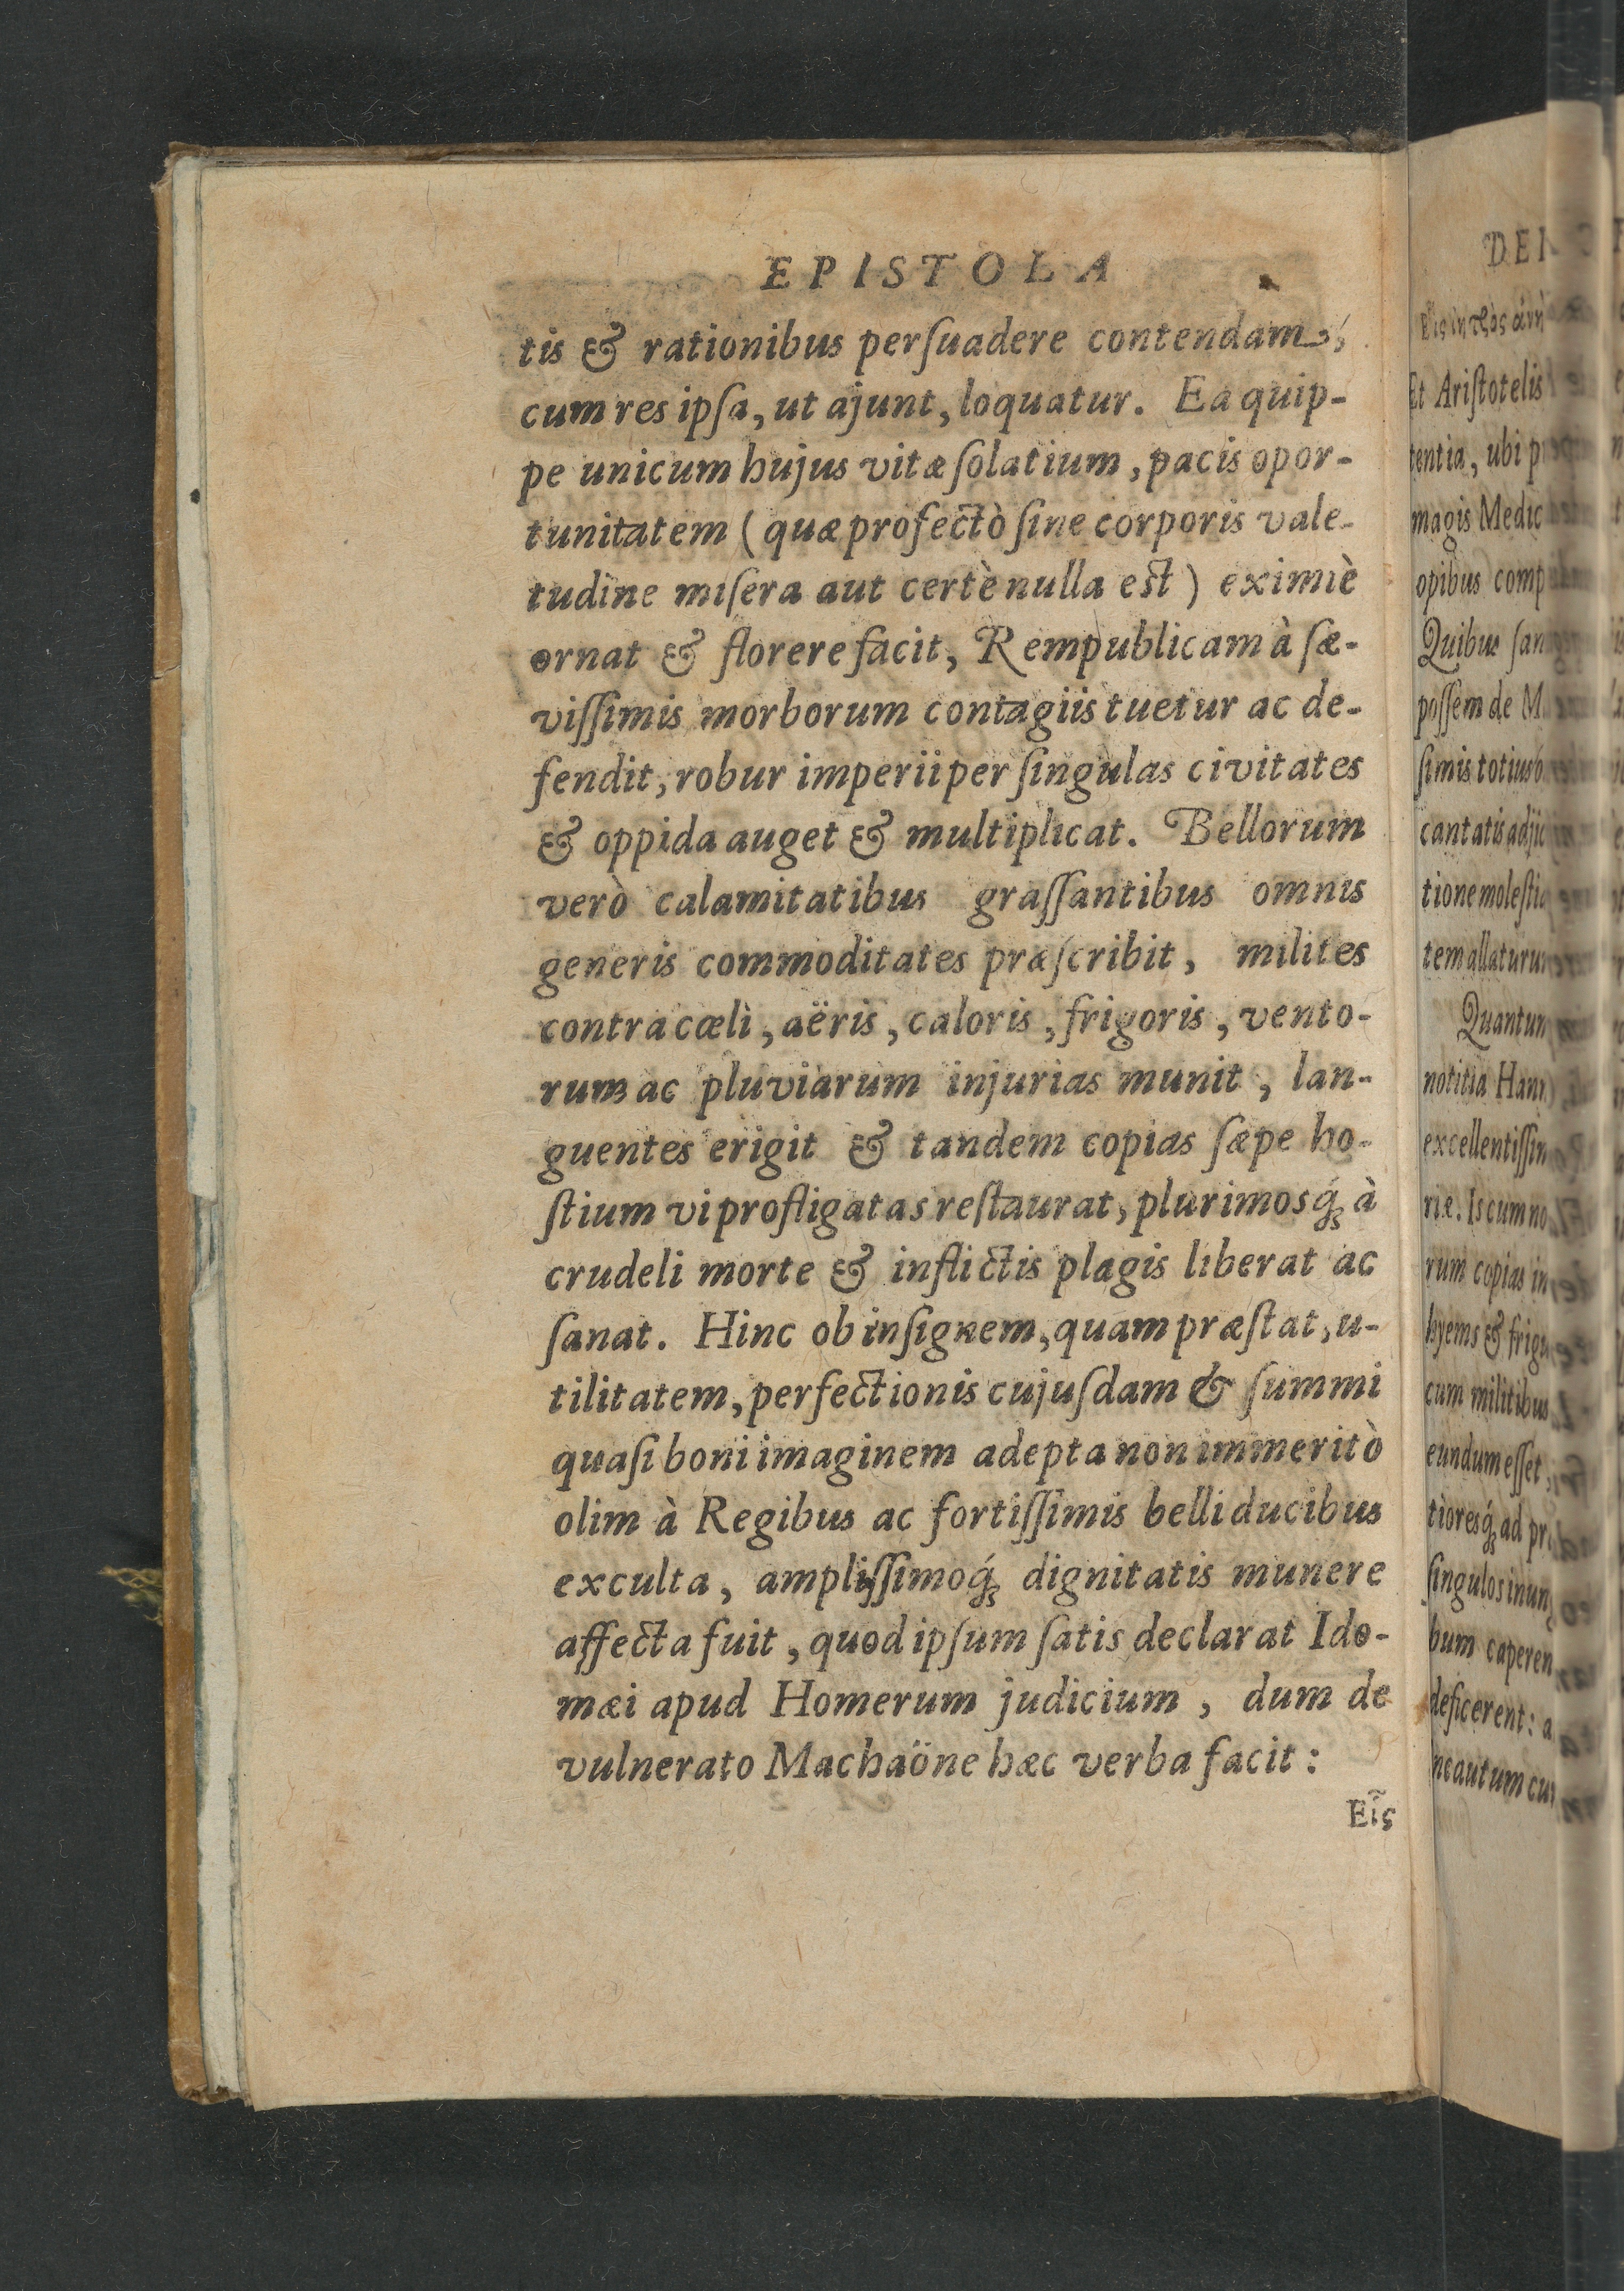 EPISTOLA
tis & rationibus perſuadere contendam,
cum res ipſa, ut ajunt, loquatur. Ea quip-
pe unicum hujus vitæ ſolatium, pacis opor-
tunitatem (quæ profectò ſine corporis vale-
tudine miſera aut certè nulla eſt) eximiè
ornat & florere facit, Rempublicam à ſæ-
viſſimis morborum contagiis tuetur ac de-
fendit, robur imperii per ſingulas civitates
& oppida auget & multiplicat. Bellorum
verò calamitatibus graſſantibus omnis
generis commoditates præſcribit, milites
contra cæli, aëris, caloris, frigoris, vento-
rum ac pluviarum injurias munit, lan-
guentes erigit & tandem copias ſæpe ho-
ſtium vi profligatas reſtaurat, plurimosq́; à
crudeli morte & inflictis plagis liberat ac
ſanat. Hinc ob inſignem, quam præſtat, u-
tilitatem, perfectionis cujuſdam & ſummi
quaſi boni imaginem adepta non immeritò
olim à Regibus ac fortiſſimis belli ducibus
exculta, ampliſſimoq́; dignitatis munere
affecta fuit, quod ipſum ſatis declarat Ido-
mæi apud Homerum judicium, dum de
vulnerato Machaöne hæc verba facit:
Εἷς
Et Ariſtotelis
tentia, ubi
magis
opibus
Quibus
poſſem de
ſimis totius
cantatis
tione
tem
Quantum
notitia
riæ. Is cum no
rum copias in
hyems &
cum militibus
eundum eſſet,
tioresq́; ad
ſingulos
bum
deficerent:
ne autum